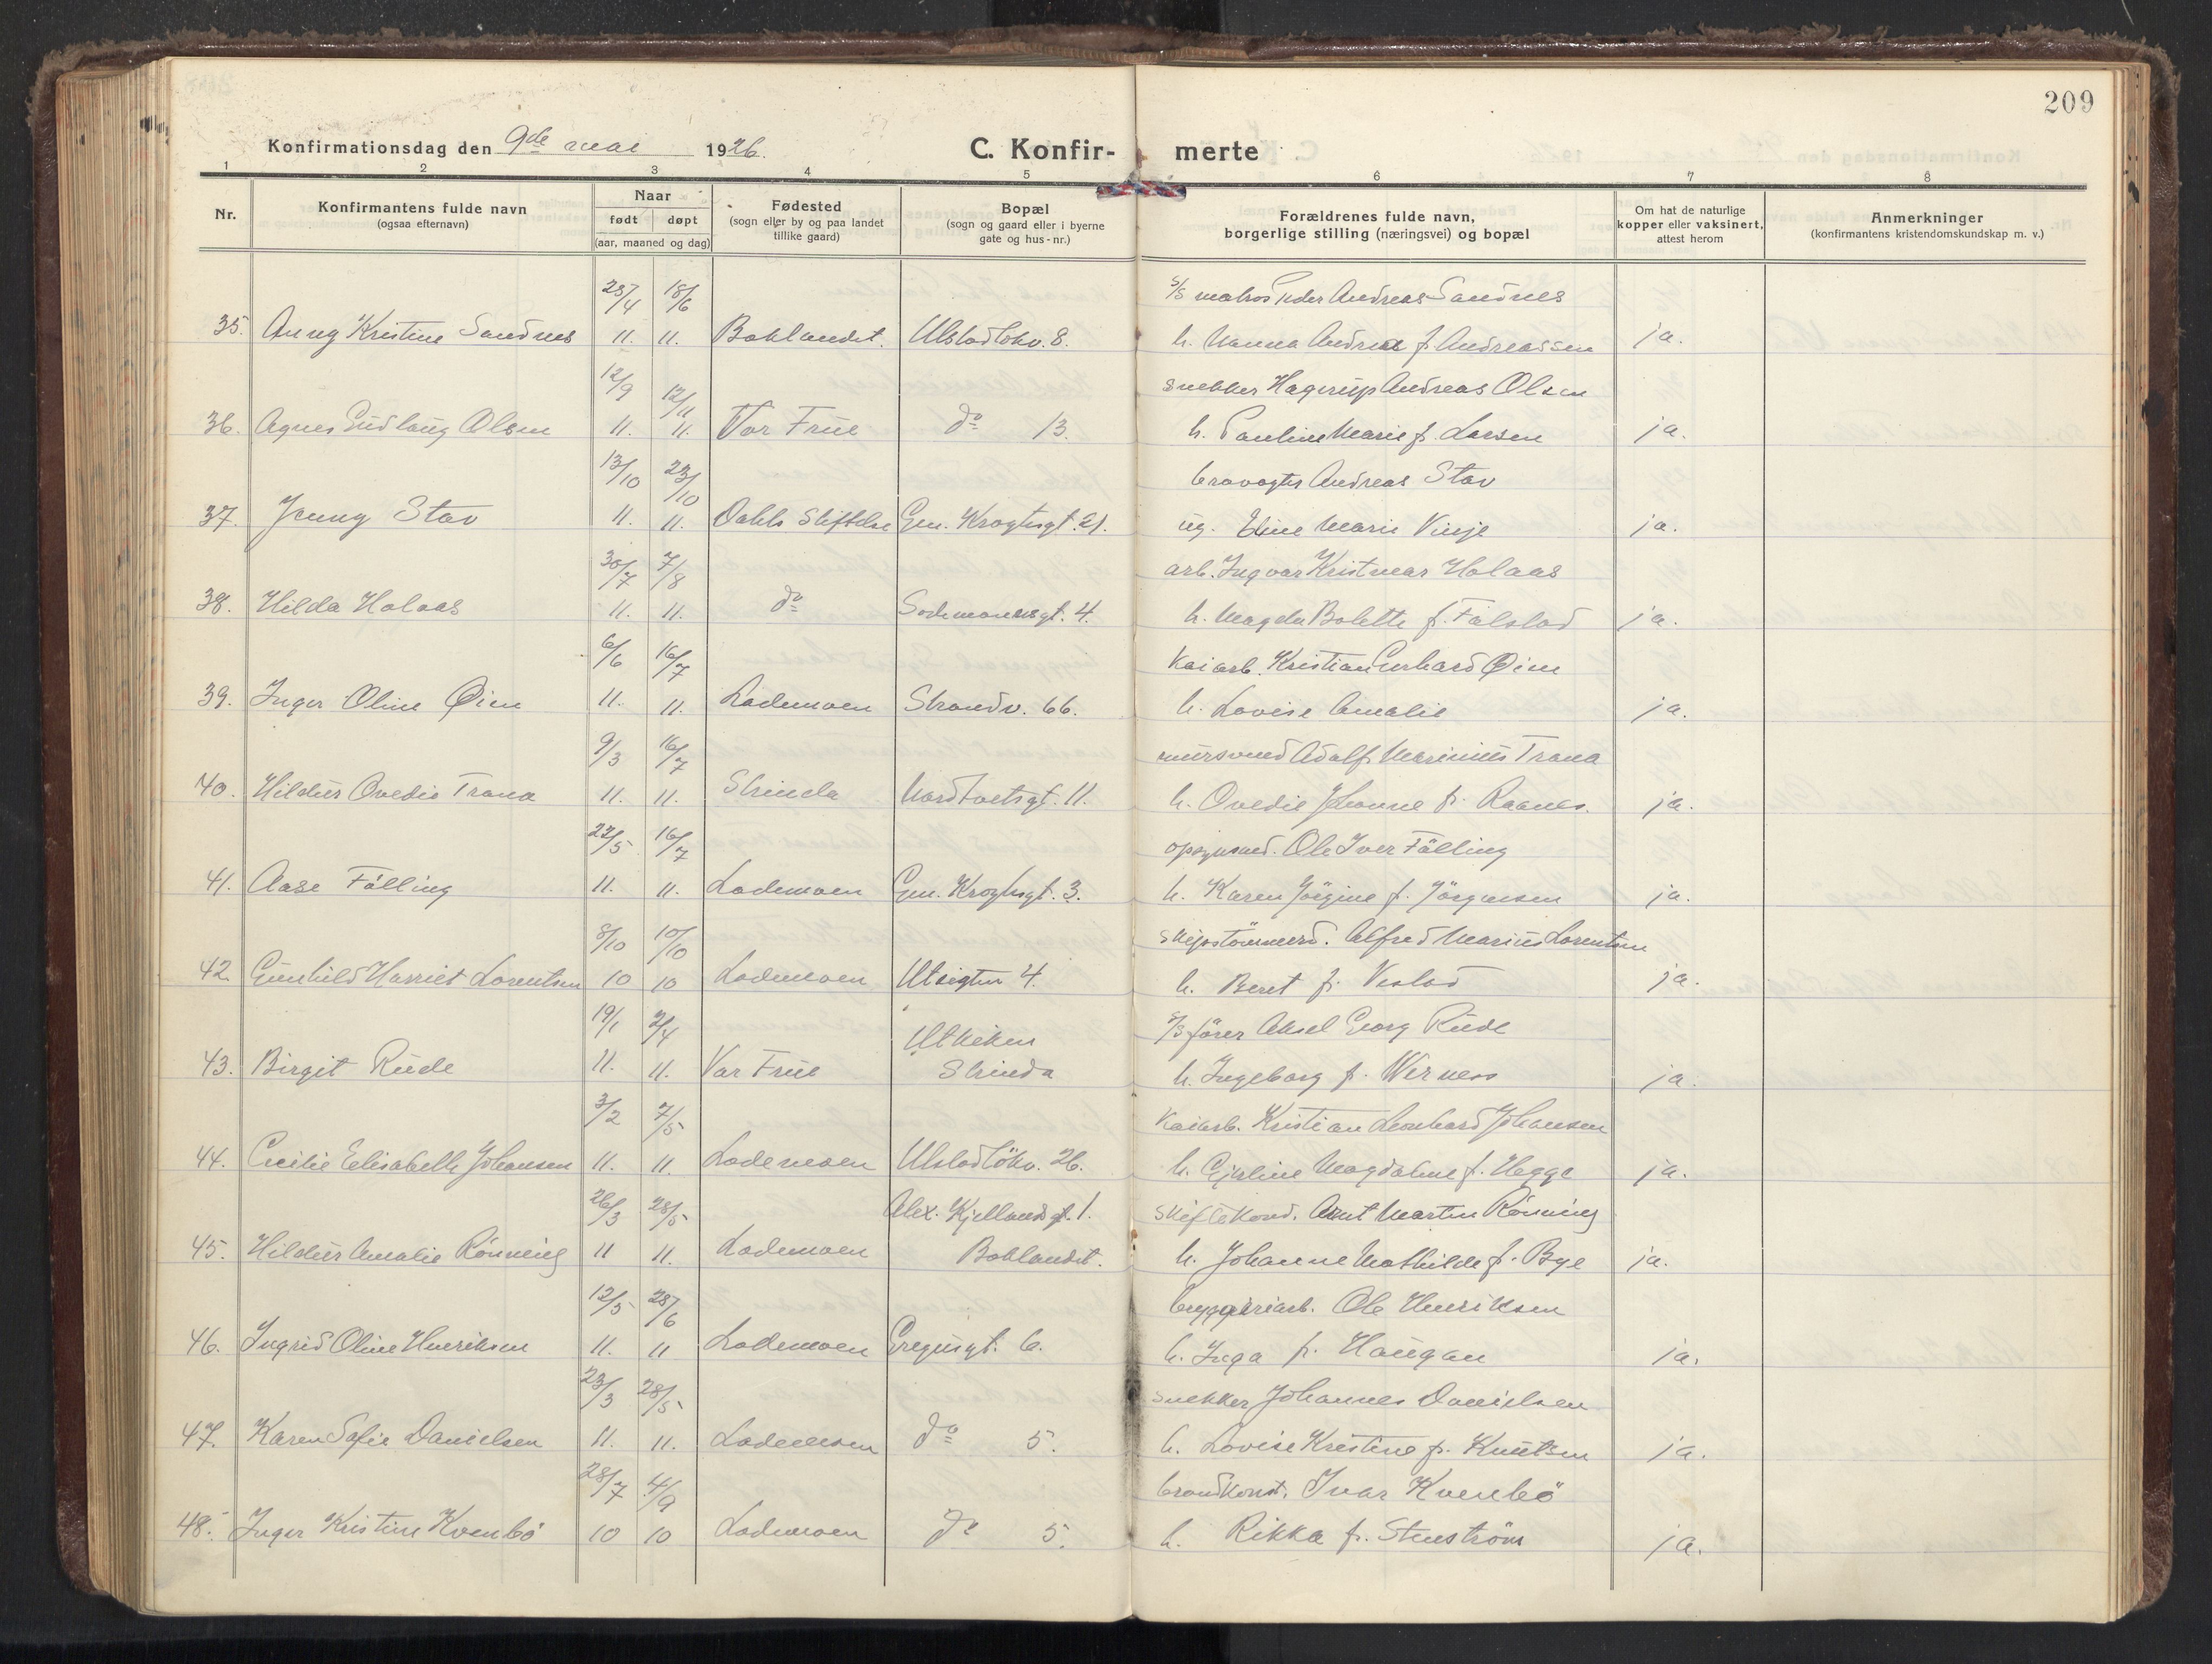 209
Konfirmationsdag den 9de mai 1926. C. Konfir- merte
1 2 3 4 5 6 7 8
Nr. Konfirmantens fulde navn (ogsaa efternavn) Naar født døpt (aar, maaned og dag) Fødested (sogn eller by og paa landet tillike gaard) Bopæl (sogn og gaard eller i byerne gate og hus-nr.) Forældrenes fulde navn, borgerlige stilling (næringsvei) og bopæl Om hat de naturlige kopper eller vaksinert, attest herom Anmerkninger (konfirmantens kristendomskundskap m. v.)
25/4 18/6 s/s matros Peder Andreas Sandnes
35. Anny Kristine Sandnes 11. 11. Baklandet. Ulstadløkv. 8. h. Hanna Andrea f. Andreassen ja.
12/9 12/11 snekker Hagerup Andreas Olsen
36. Agnes Gudlaug Olsen 11. 11. Vor Frue do 13. h. Pauline Marie f. Larsen ja.
13/10 23/10 brovogter Andreas Stav
37. Jenny Stav 11. 11. Dahls Stiftelse Gen. Kroghsgt. 21. ug. Eline Marie Vinje ja.
30/7 7/8 arb. Ingvar Kristmar Holaas
38. Hilda Holaas 11. 11. do Sodemannsgt. 4. h. Magda Bolette f. Falstad ja.
6/6 16/7 Kaiarb. Kristian Gerhard Øien
39. Inger Oline Øien 11. 11. Lademoen Strandv. 66. h. Lovise Amalie ja.
9/3 16/7 mursvend Adolf Marinius Trana
40. Hildur Ovedie Trana 11. 11. Strinda Nordtvetsgt. 11. h. Ovedie Johanne f. Raanes. ja.
27/5 16/7 opsynsmd. Ole Iver Fölling
41. Aase Fölling 11. 11. Lademoen Gen. Kroghsgt. 3. h. Karen Jörgine f. Jörgensen ja.
8/10 10/10 skipstömmerd. Alfred Marius Lorentsen
42. Gunhild Harriet Lorentsen 10 10 Lademoen Utsigten 4. h. Beret f. Vestad ja.
19/1 2/4 Utkiken s/s förer Aksel Georg Rude
43. Birgit Rude 11. 11. Vor Frue Strinda h. Ingeborg f. Werness ja.
3/2 7/5 Kaiarb. Kristian Leonhard Johansen
44. Cecilie Elisabeth Johansen 11. 11. Lademoen Ulstadlökv. 26. h. Gjerline Magdalene f. Hegge ja.
26/3 28/5 Alex. Kjellandsgt. 1. skiftekond. Arnt Martin Rönning
45. Hildur Amalie Rönning 11 11. Lademoen Baklandet. h. Johanne Mathilde f. Bye ja.
12/5 25/6 bryggeriarb. Ole Henriksen
46. Ingrid Oline Henriksen 11. 11 Lademoen Gregusgt. 6. h. Inga f. Haugan ja.
23/3 28/5 snekker Johannes Danielsen
47. Karen Sofie Danielsen 11. 11. Lademoen do 5. h. Lovise Kristine f. Knutsen ja.
28/7 4/9 brandkonst. Ivar Kvenbö
48. Inger Kristine Kvenbö 10 10 Lademoen do 5. h. Rikka f. Stenström ja.